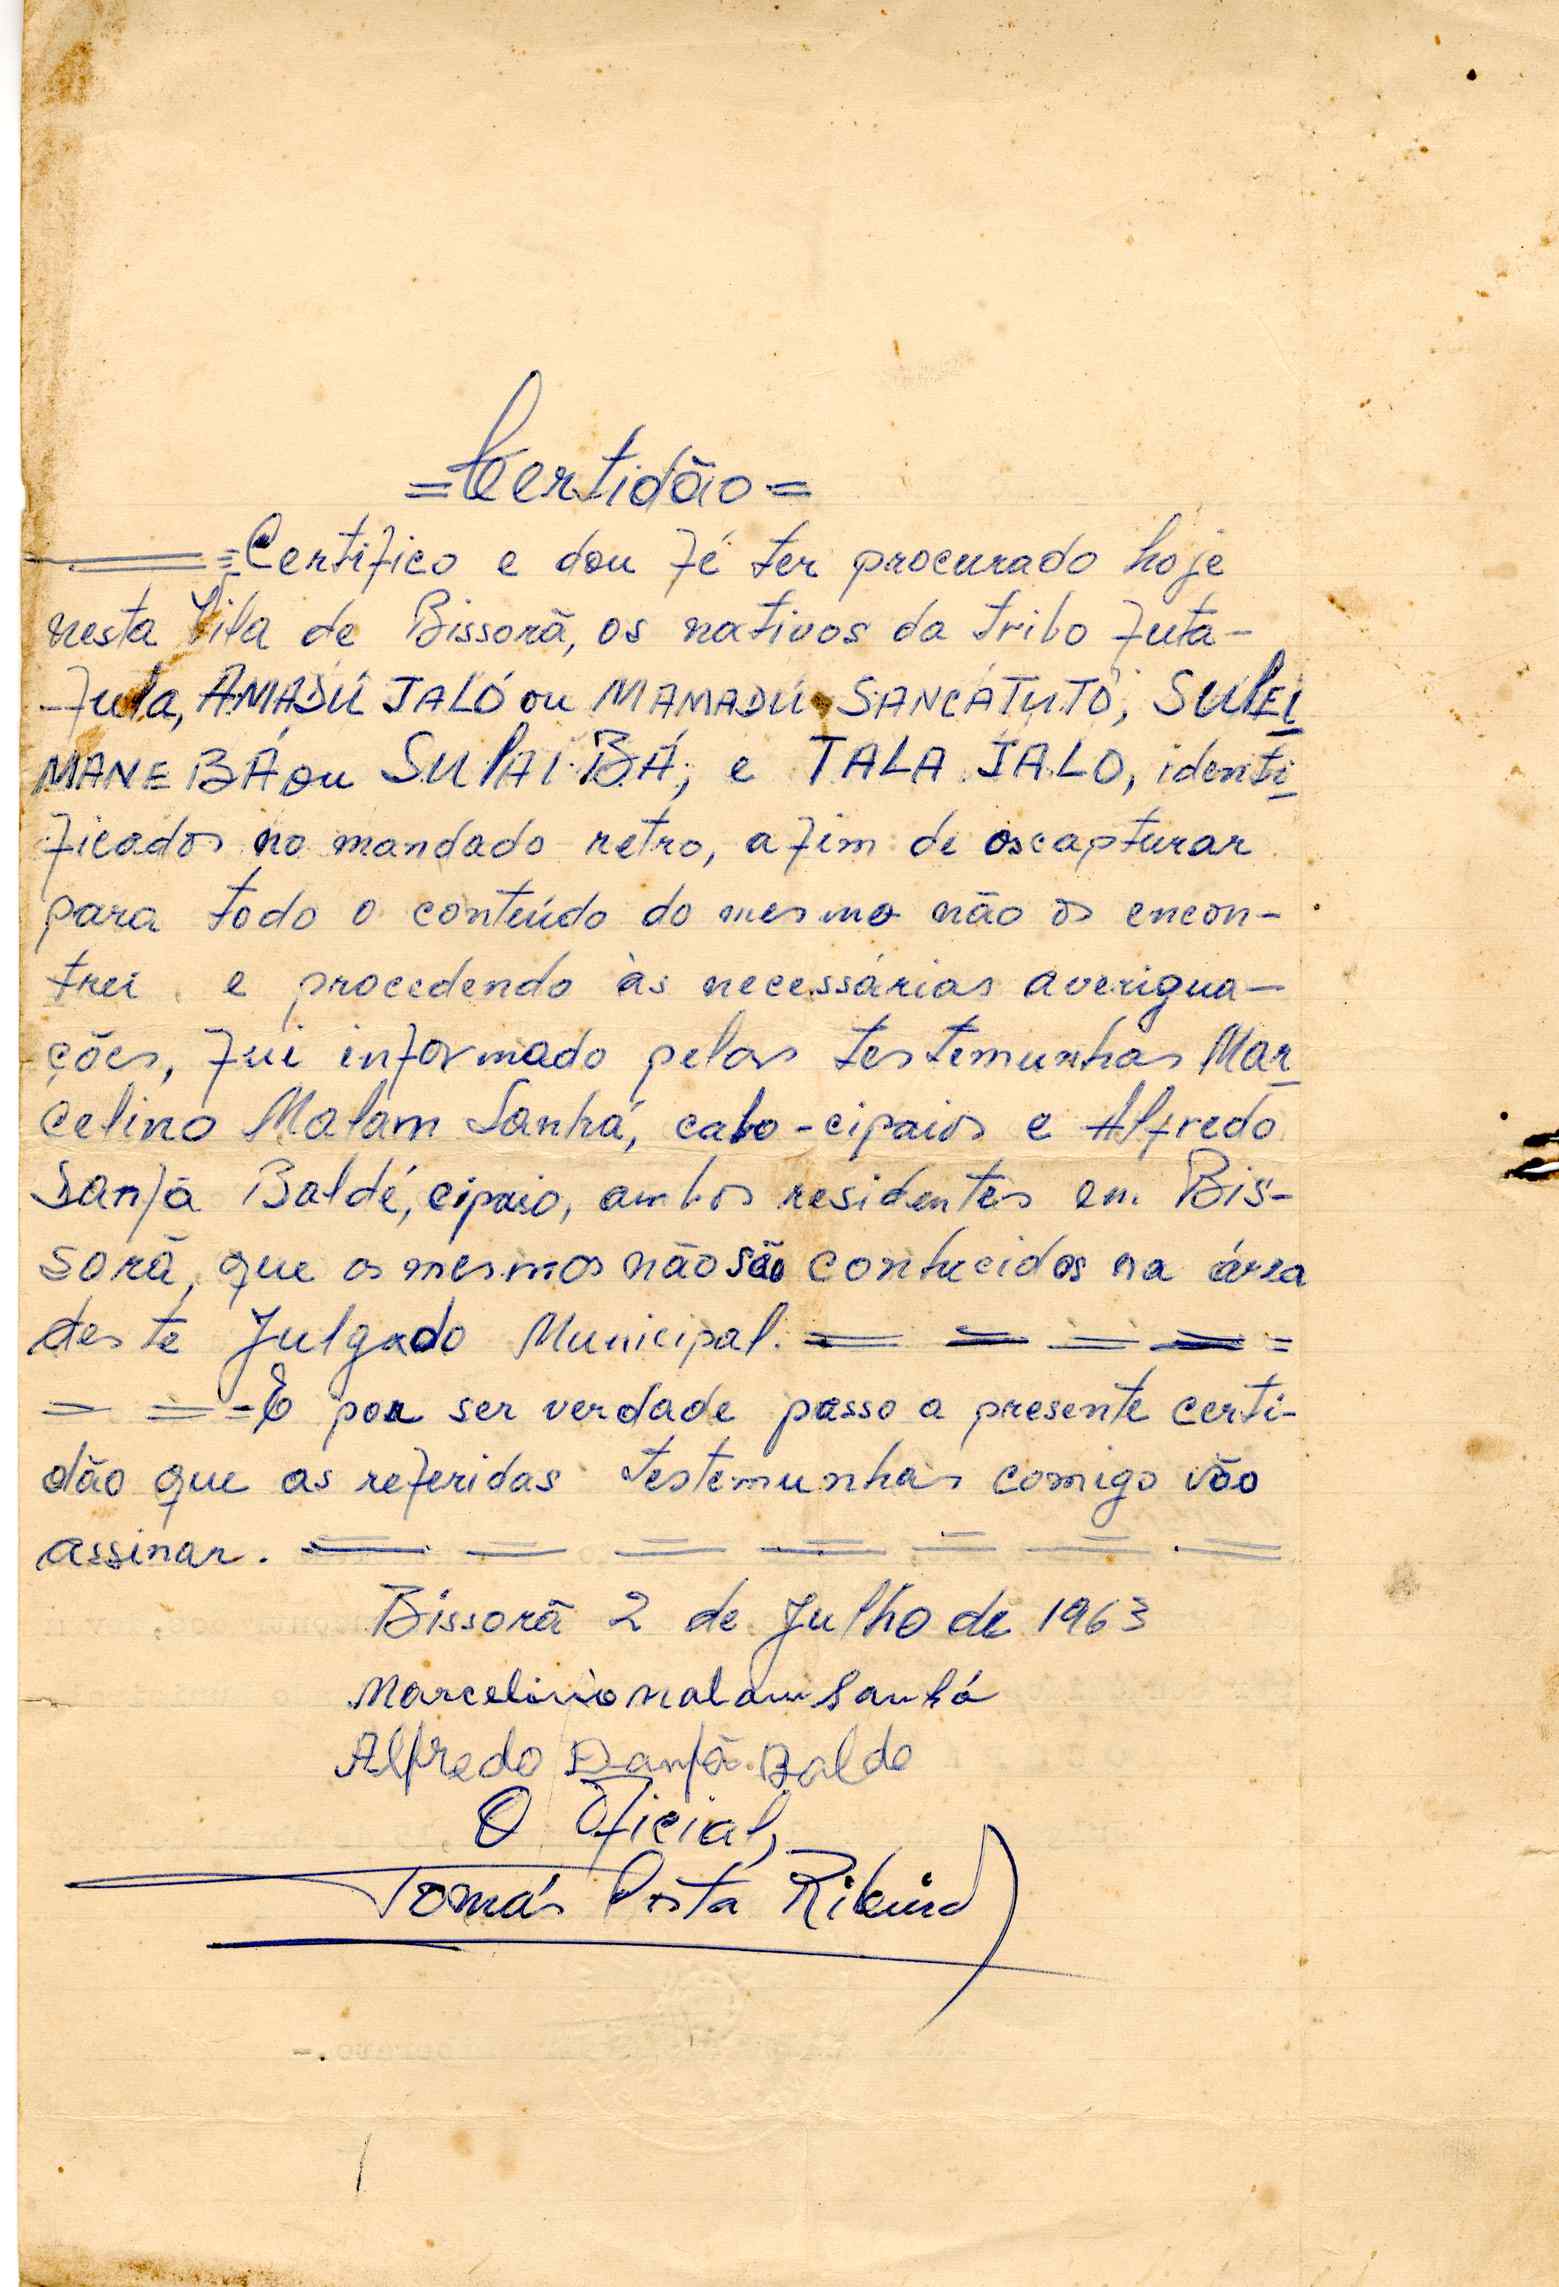 =Certidão=
=Certifico e dou fé ter procurado hoje
nesta Vila de Bissorã, os nativos da tribo futa-
-fula, AMADÚ JALÓ ou MAMADÚ SANCÁTUTÓ, SULEI
MANE BÁ ou SULAI BÁ, e TALA JALO, identi
ficados no mandado retro, afim de os capturar
para todo o conteúdo do mesmo não os encon-
trei e procedendo às necessárias averigua-
ções, fui informado pelas testemunhas Mar
celino Malam Sanhá, cabo-cipaios e Alfredo
Sanjá Baldé, cipaio, ambos residentes em Bis-
sorã, que os mesmos não são conhecidos na área
deste Julgado Municipal. = = = = =
= = =E por ser verdade passo a presente certi-
dão que as referidas testemunhas comigo vão
assinar. = = = = = = =
Bissorã 2 de Julho de 1963
Marcelino Malam Sanhá
Alfredo Baldo
O Oficial,
Tomás Costa Ribeiro